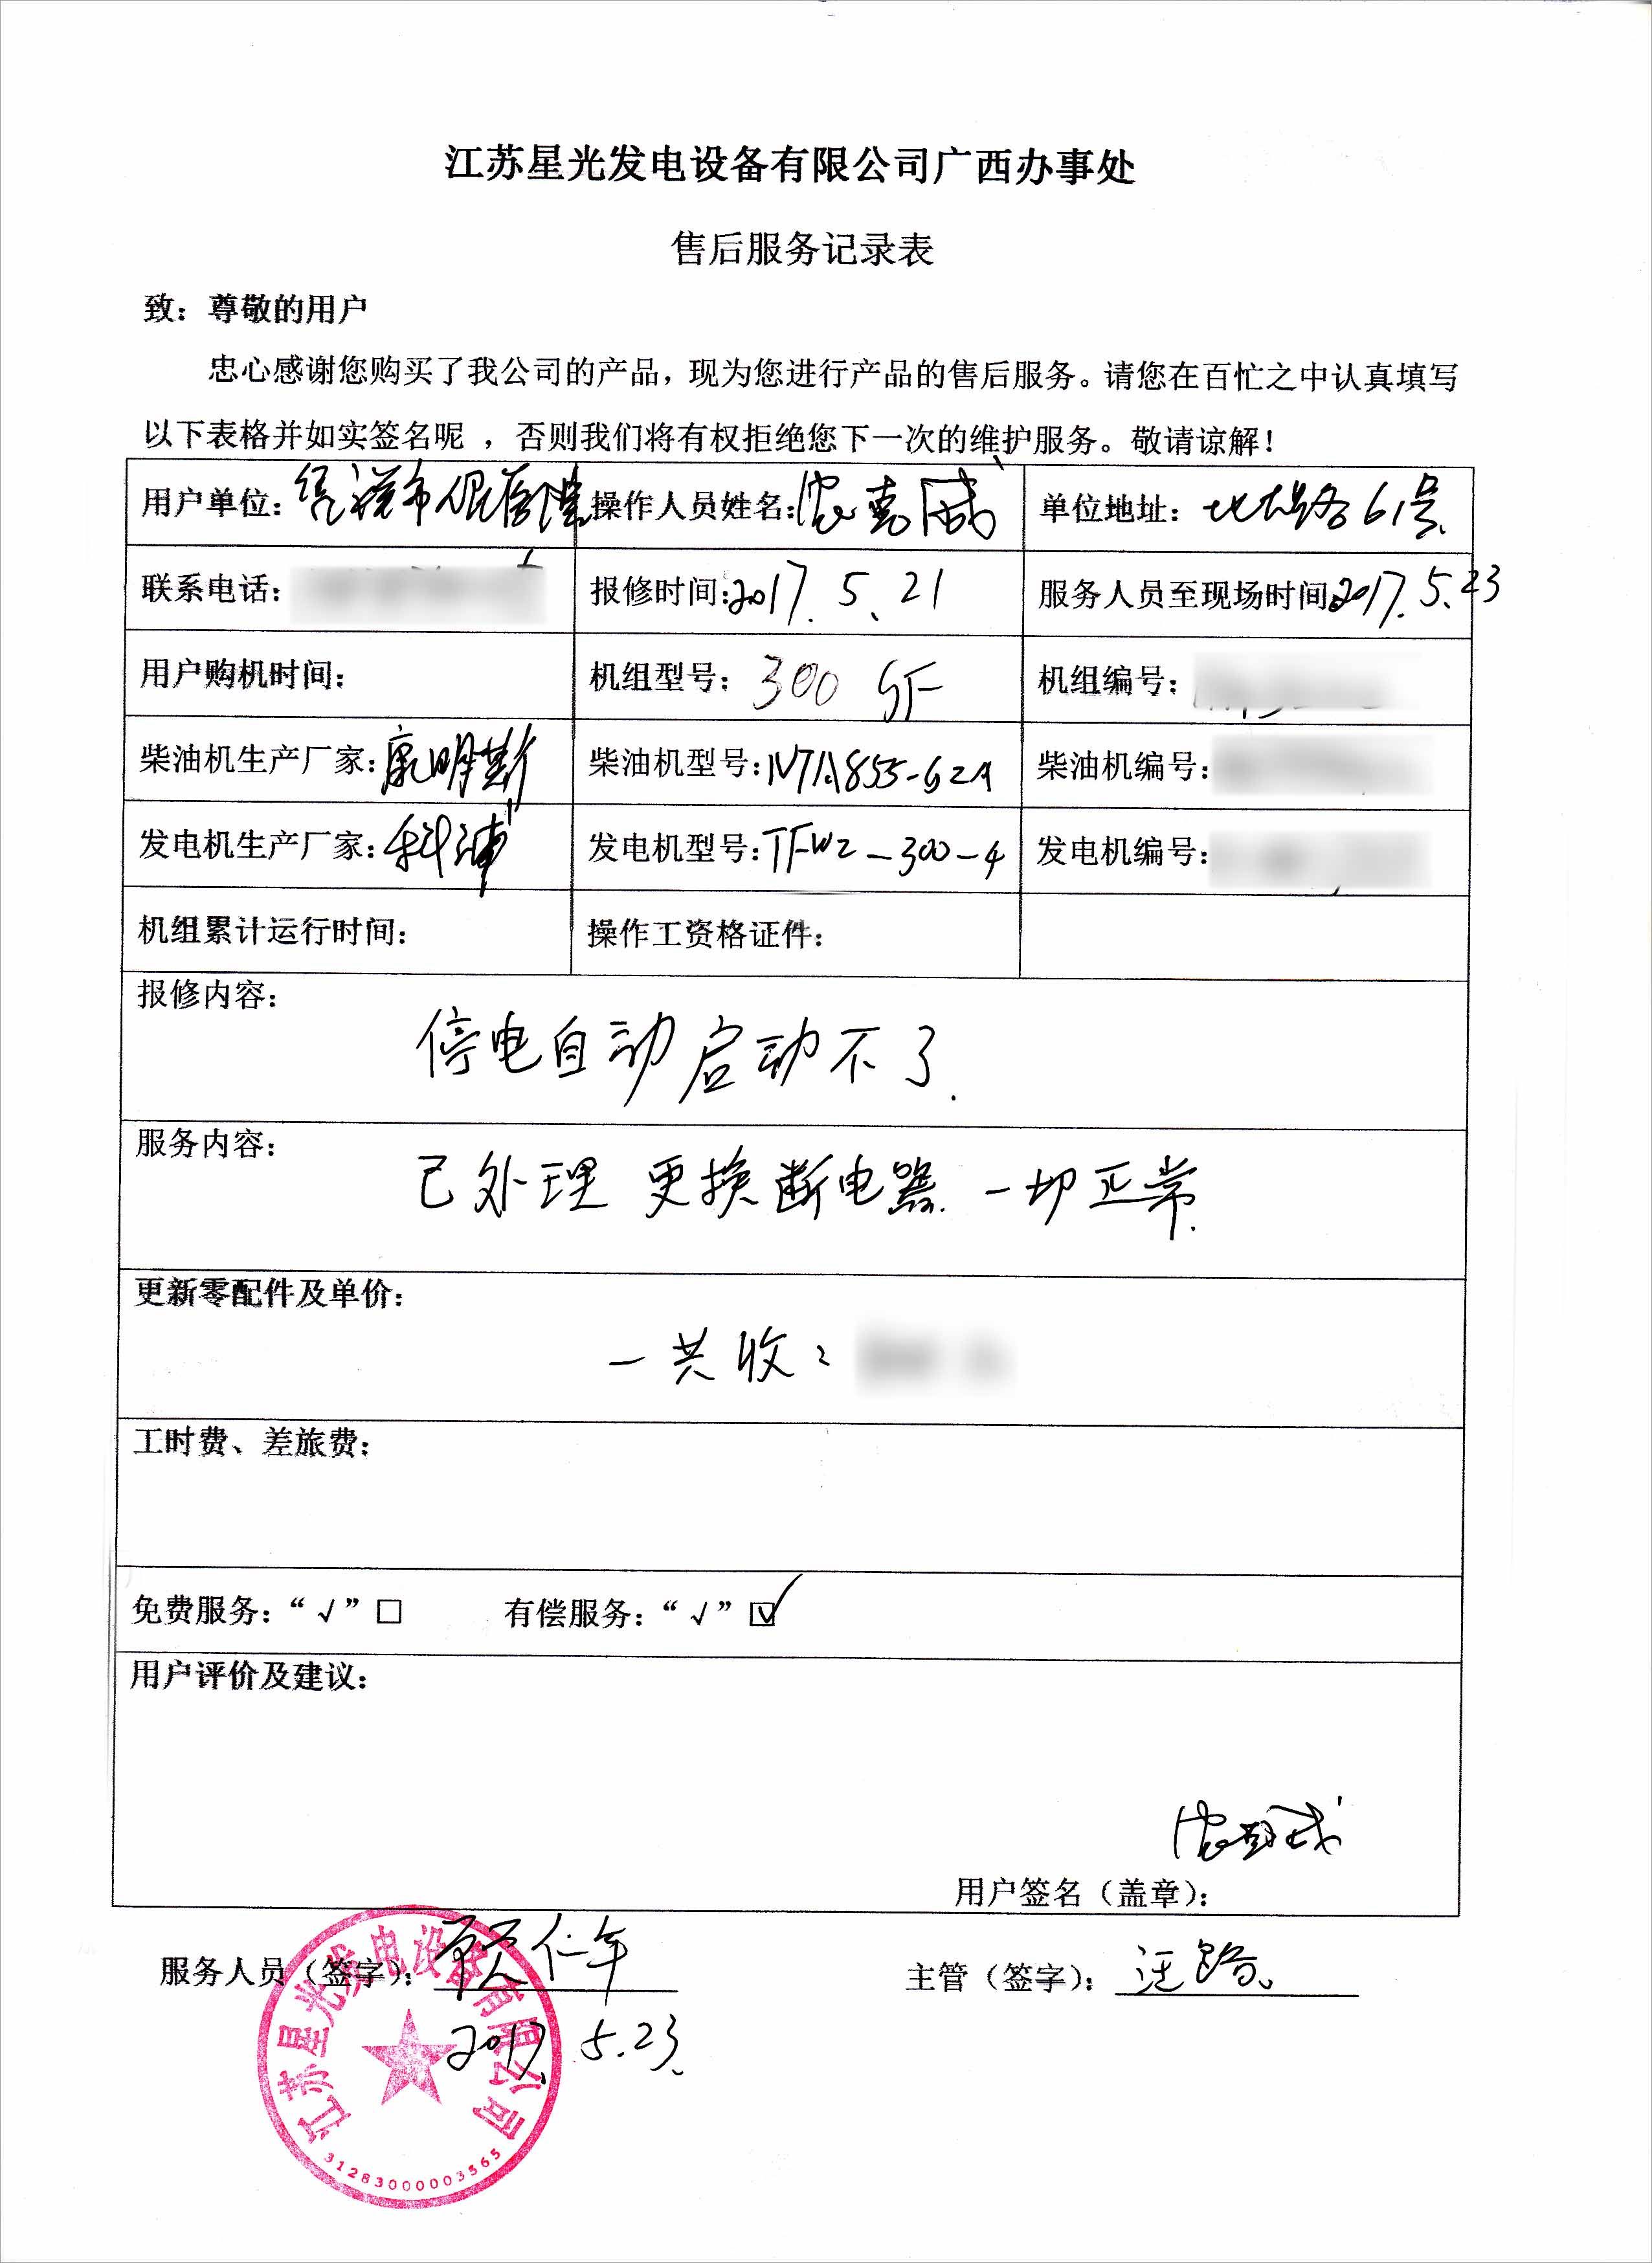 江苏星光发电设备有限公司广西办事处
售后服务记录表
致：尊敬的用户
忠心感谢您购买了我公司的产品，现为您进行产品的售后服务。请您在百忙之中认真填写
以下表格并如实签名呢 ，否则我们将有权拒绝您下一次的维护服务。敬请谅解！
用户单位： 操作人员姓名： 单位地址： 路61号
联系电话： 报修时间：2017.5.21 服务人员至现场时间 2017.5.23
用户购机时间： 机组型号：300 GF 机组编号：
柴油机生产厂家：康明斯 柴油机型号：NTA855-G2A 柴油机编号：
发电机生产厂家：科浦 发电机型号：TFW2-300-4 发电机编号：
机组累计运行时间： 操作工资格证件：
报修内容：
停电自动启动不了.
服务内容：
已处理 更换断电器. 一切正常.
更新零配件及单价：
一共收：
工时费、差旅费：
免费服务：“√”□ 有偿服务：“√”☑
用户评价及建议：
用户签名（盖章）：
服务人员（签字）：顾仁年 主管（签字）：汪路
2017.5.23.
江苏星光发电设备有限公司
31283000003565